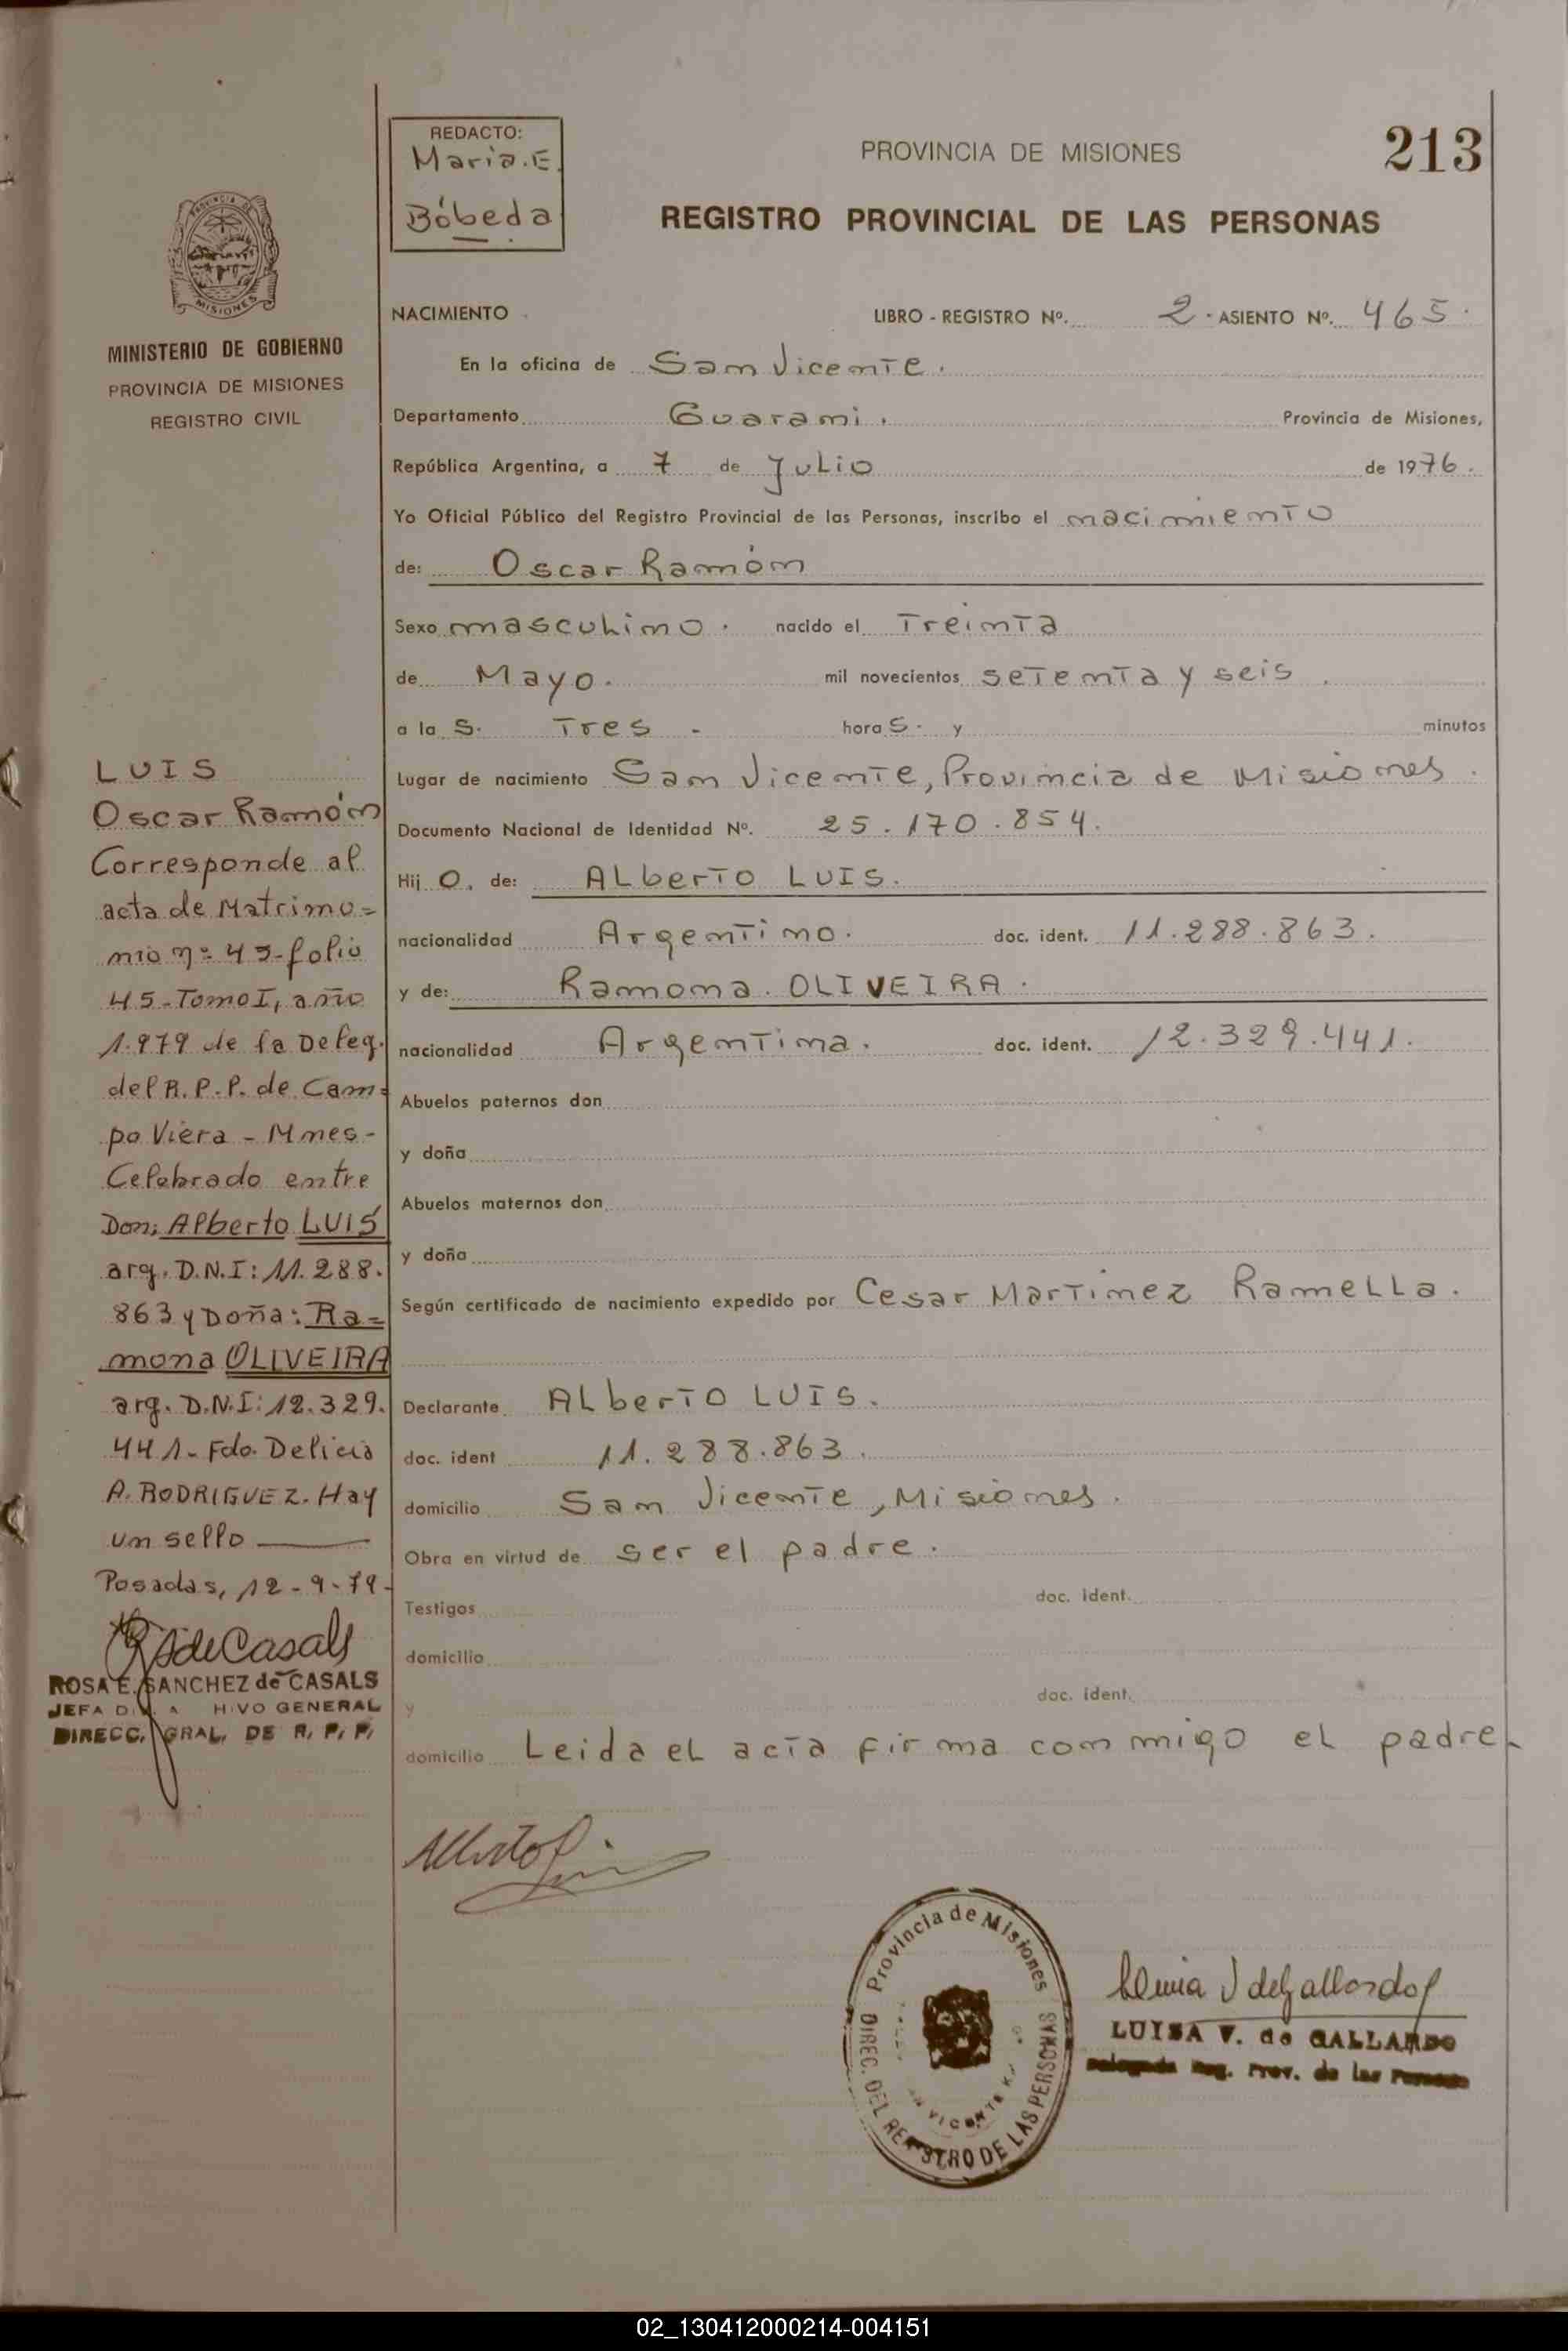 REDACTO:
Maria.E.
Bóbeda
PROVINCIA DE MISIONES
213
REGISTRO PROVINCIAL DE LAS PERSONAS
PROVINCIA DE
MISIONES
MINISTERIO DE GOBIERNO
PROVINCIA DE MISIONES
REGISTRO CIVIL
NACIMIENTO LIBRO - REGISTRO Nº. 2. ASIENTO Nº. 465.
En la oficina de San Vicente.
Departamento Guarani. Provincia de Misiones,
República Argentina, a 7 de Julio de 1976.
Yo Oficial Público del Registro Provincial de las Personas, inscribo el nacimiento
de: Oscar Ramón
Sexo masculino. nacido el Treinta
de Mayo. mil novecientos setenta y seis.
a la s. Tres - hora s. y minutos
Lugar de nacimiento San Vicente, Provincia de Misiones.
Documento Nacional de Identidad Nº. 25.170.854.
Hij o. de: ALberto LUIS.
nacionalidad Argentino. doc. ident. 11.288.863.
y de: Ramona. OLIVEIRA.
nacionalidad Argentina. doc. ident. 12.329.441.
Abuelos paternos don
y doña
Abuelos maternos don
y doña
Según certificado de nacimiento expedido por Cesar Martinez RameLLa.
Declarante ALberto LUIS.
doc. ident 11.288.863.
domicilio San Vicente, Misiones.
Obra en virtud de ser el padre.
Testigos doc. ident.
domicilio
y doc. ident.
domicilio Leida eL acta firma conmigo eL padre-
LUIS
Oscar Ramón
Corresponde al
acta de Matrimo=
nio nº 45-folio
45-Tomo I, año
1.979 de la Deleg.
del R.P.P. de Cam=
po Viera - Mnes-
Celebrado entre
Don; Alberto LUIS
arg. D.N.I: 11.288.
863 y Doña: Ra=
mona OLIVEIRA
arg. D.N.I: 12.329.
441- Fdo. Delicia
A. RODRIGUEZ. Hay
un sello
Posadas, 12-9-79-
RSdeCasals
ROSA E. SANCHEZ de CASALS
JEFA HIVO GENERAL
DIRECC. GRAL. DE R. P. P.
Provincia de Misiones
DIREC. DEL REGISTRO DE LAS PERSONAS
VICENTE
LUISA V. de GALLARDO
Delegada Reg. Prov. de las Personas
02_130412000214-004151